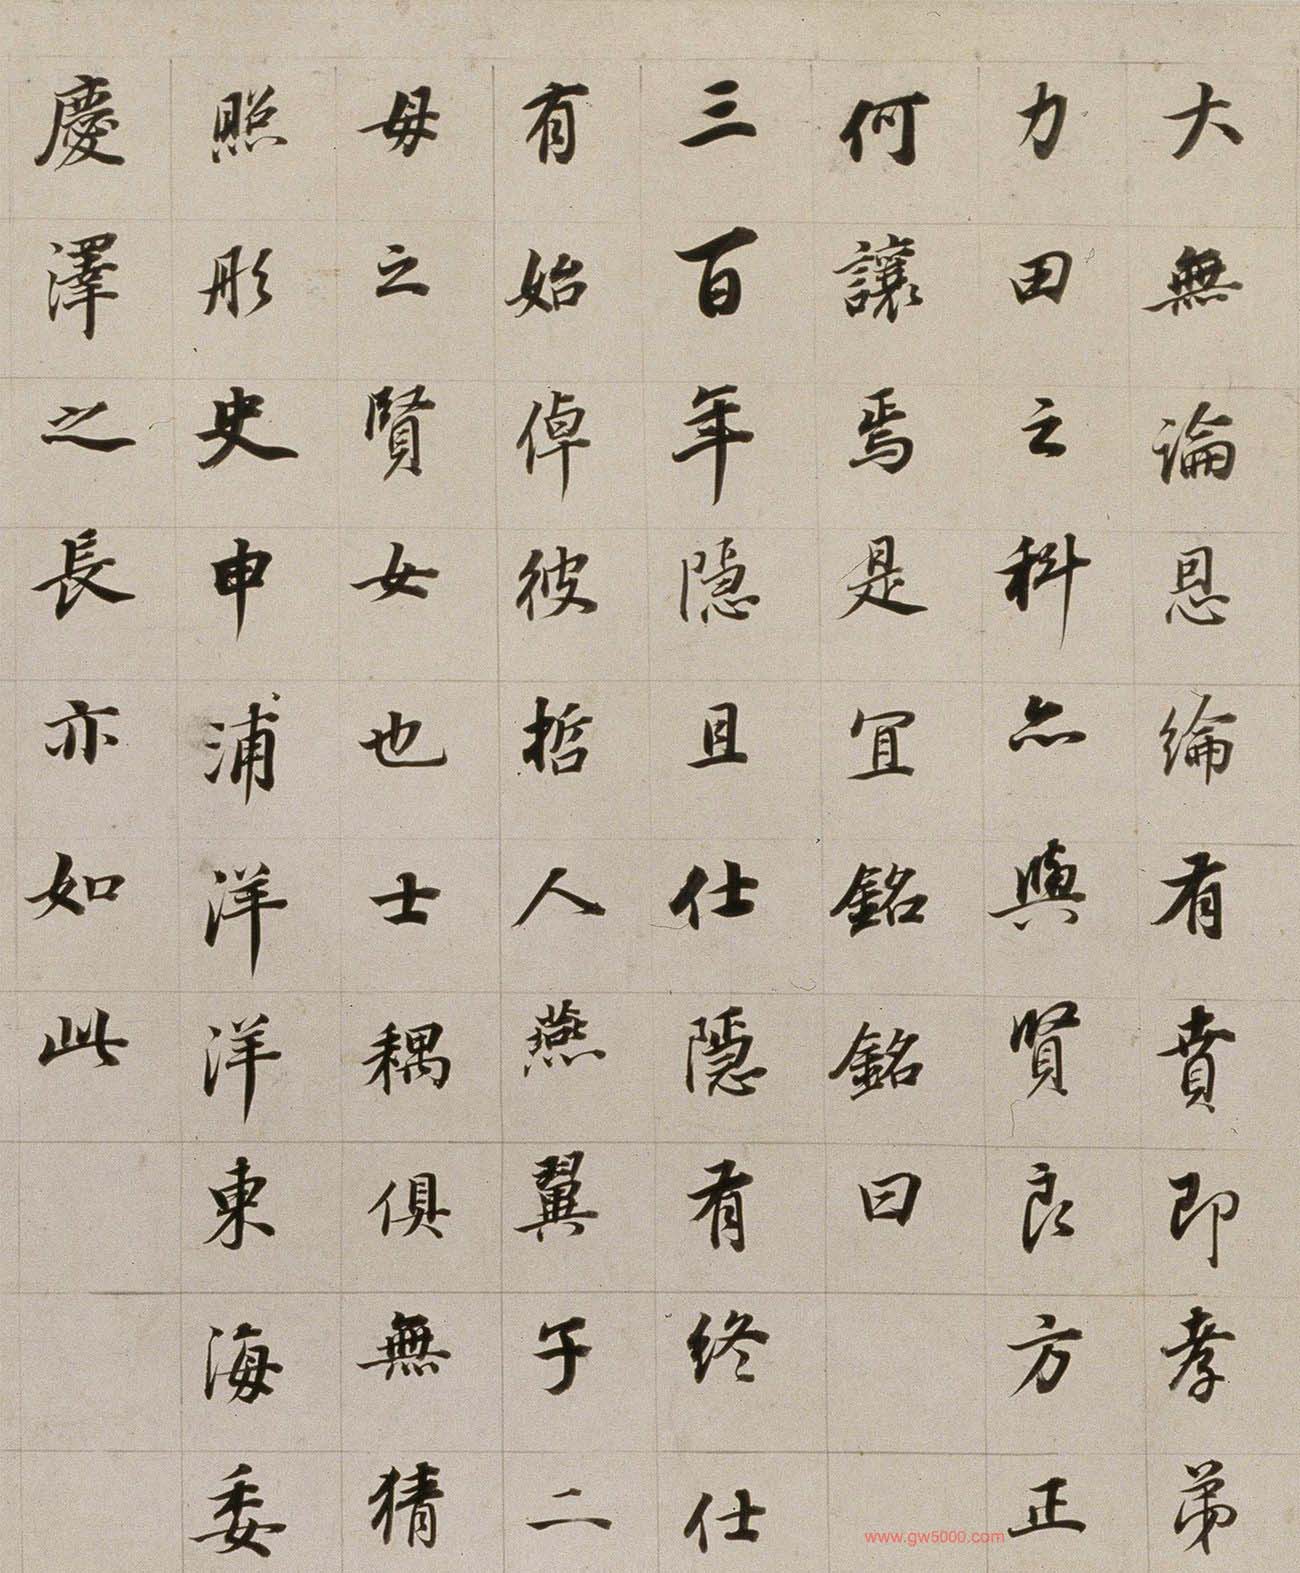 大無論恩綸有賁即孝弟
力田之科亦與賢良方正
何讓焉是宜銘銘曰
三百年隱且仕隱有終仕
有始倬彼哲人燕翼子二
母之賢女也士耦俱無猜
照彤史申浦洋洋東海委
慶澤之長亦如此
www.gw5000.com